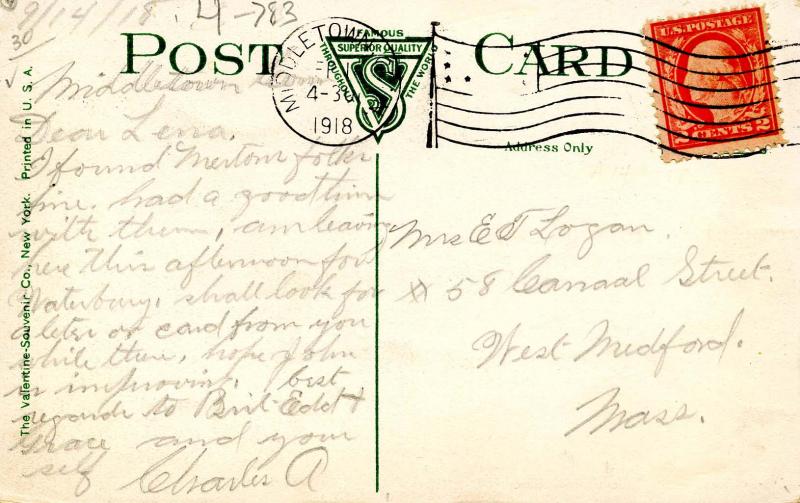 9/14/18
4-783
30
POST CARD
FAMOUS
SUPERIOR QUALITY
THROUGHOUT
THE WORLD
VS
MIDDLETOWN
4-30
1918
U.S. POSTAGE
2 CENTS 2
Address Only
The Valentine-Souvenir Co., New York. Printed in U. S. A.
Middletown
Dear Lena.
I found Merton folks
fine. had a good time
with them, am leaving
here this afternoon for
Waterbury. shall look for
a letter or card from you
while there, hope John
is improving. best
regards to Brit Edd &
Grace and your
self Charles A
Mrs E T Logan.
58 Canaal Street.
West Medford.
Mass.